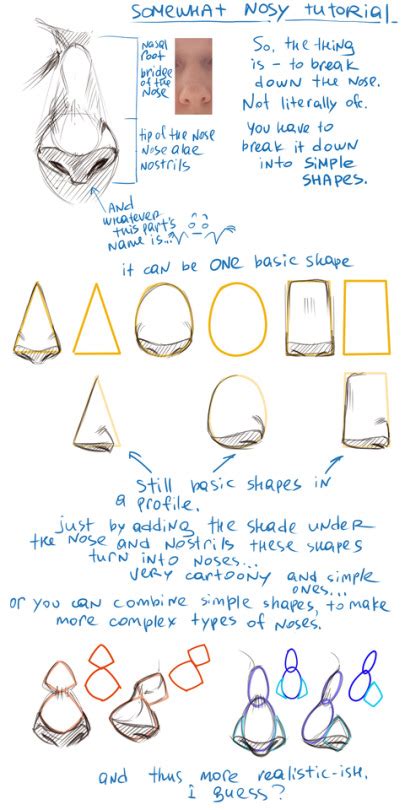 SOMEWHAT NOSY TUTORIAL
NASAL ROOT
bridge of the Nose
tip of the Nose
Nose alae
Nostrils
So, the thing
is - to break
down the nose.
Not literally ofc.
You have to
break it down
into SIMPLE
SHAPES.
And
whatever
this part's
name is...
it can be ONE basic shape
Still basic shapes in
a profile.
just by adding the shade under
the nose and nostrils these shapes
turn into noses...
very cartoony and simple
ones...
or you can combine simple shapes, to make
more complex types of noses.
and thus more realistic-ish.
i guess?